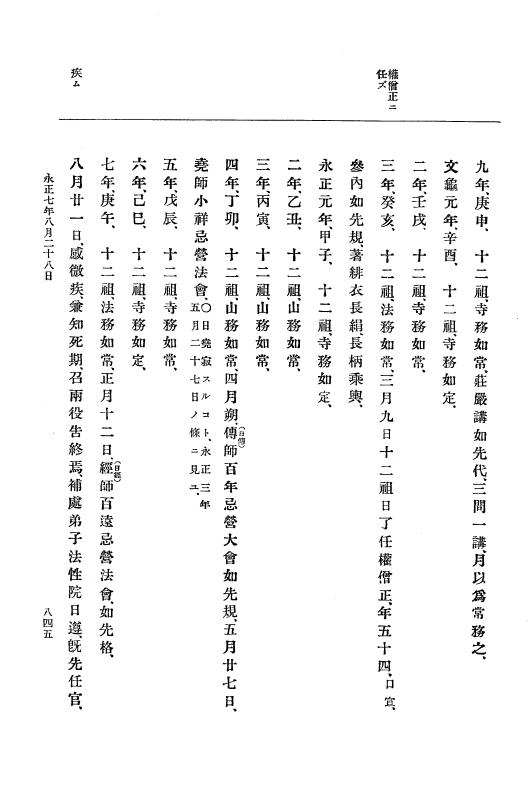 權僧正ニ
任ズ
疾ム
九年、庚申、 十二祖、寺務如常、莊嚴講如先代、三問一講、月以爲常務之、
文龜元年、辛酉、 十二祖、寺務如定、
二年、壬戌、 十二祖、寺務如常、
三年、癸亥、 十二祖、法務如常、三月九日十二祖日了任權僧正、年五十四、口宣、
參內如先規、著緋衣長絹、長柄乘輿、
永正元年、甲子、 十二祖、寺務如定、
二年、乙丑、 十二祖、山務如常、
三年、丙寅、 十二祖、山務如常、
四年、丁卯、 十二祖、山務如常、四月朔、傳師(日傳)百年忌營大會如先規、五月廿七日、
堯師小祥忌營法會、〇日堯寂スルコト、永正三年
五月二十七日ノ條ニ見ユ、
五年、戊辰、 十二祖、寺務如常、
六年、己巳、 十二祖、寺務如定、
七年、庚午、 十二祖、法務如常、正月十二日、經師(日經)百遠忌營法會、如先格、
八月廿一日、感微疾、兼知死期、召兩役告終焉、補處弟子法性院日遵、旣先任官、
永正七年八月二十八日
八四五